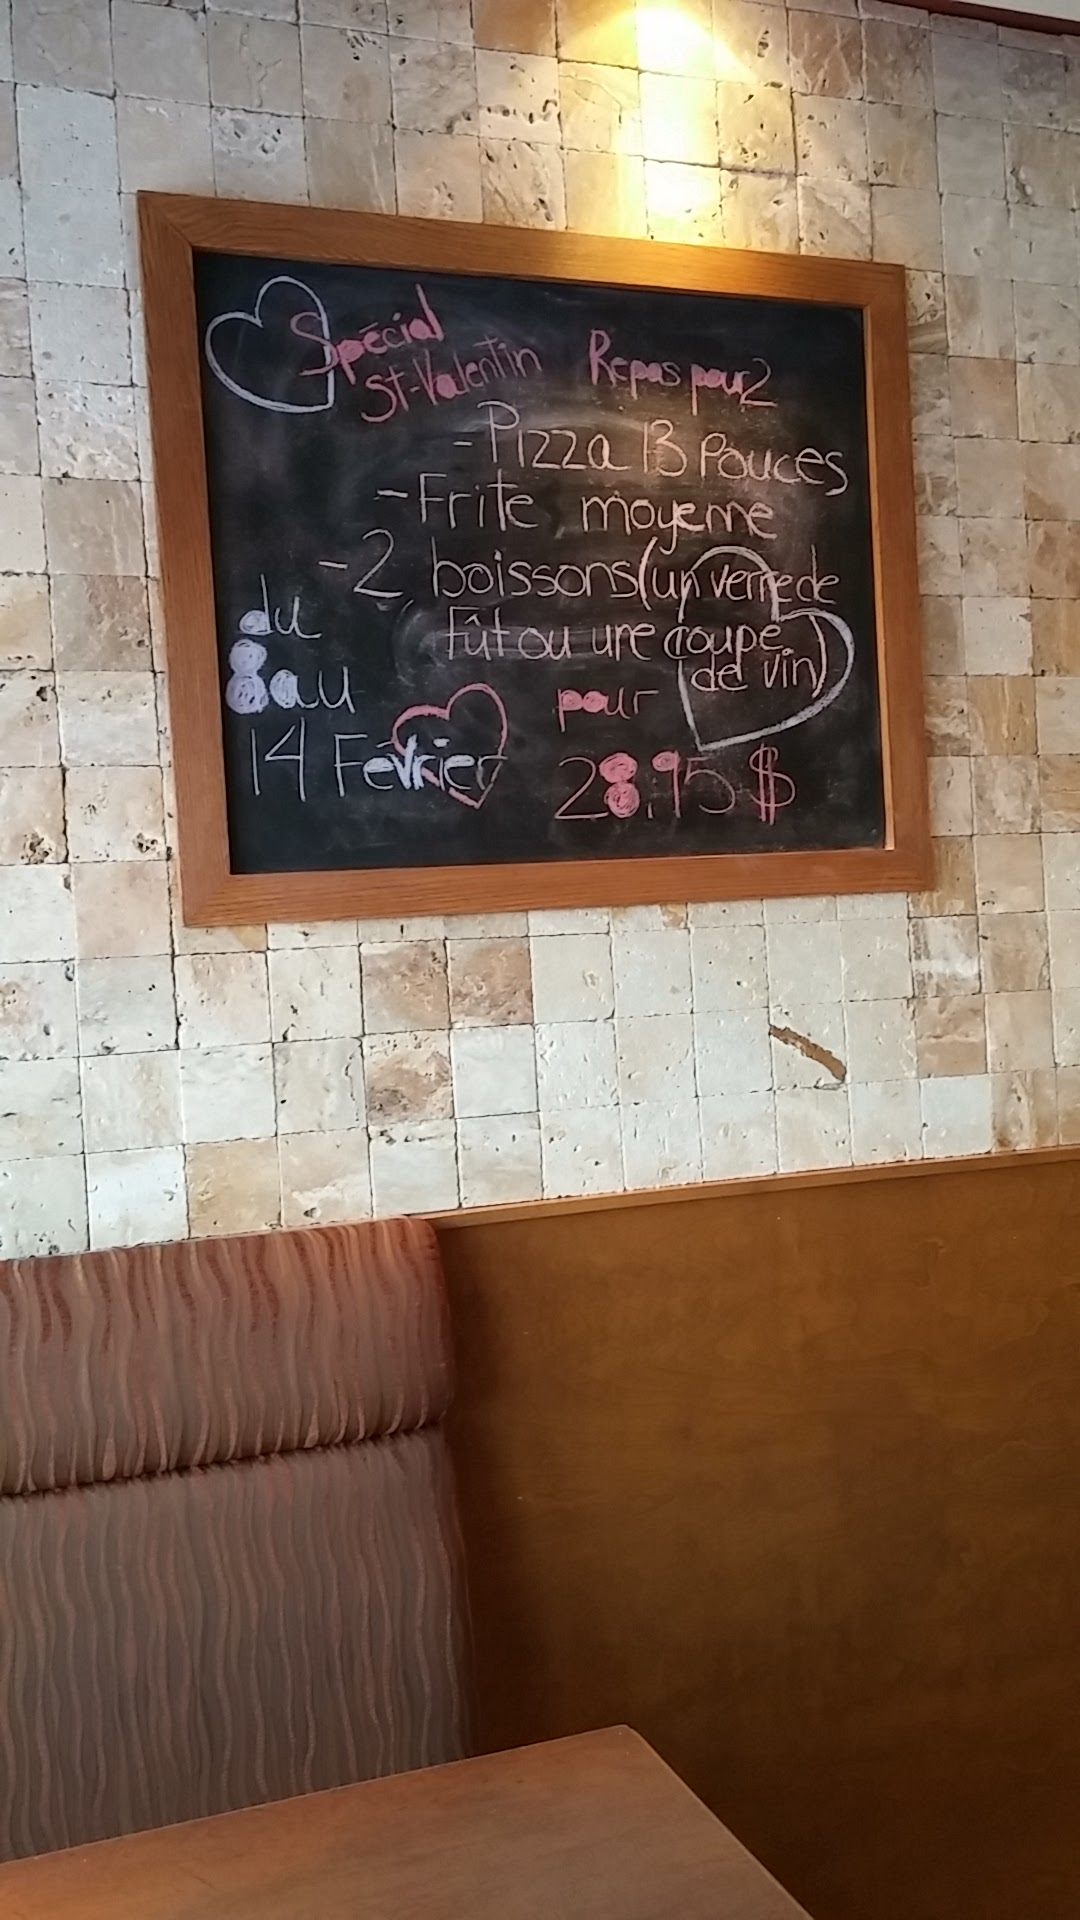 Spécial
St-Valentin Repas pour 2
- Pizza 13 Pouces
- Frite moyenne
- 2 boissons (un verre de
Fût ou une coupe
de vin)
du
8 au
14 Février
pour
28.95 $